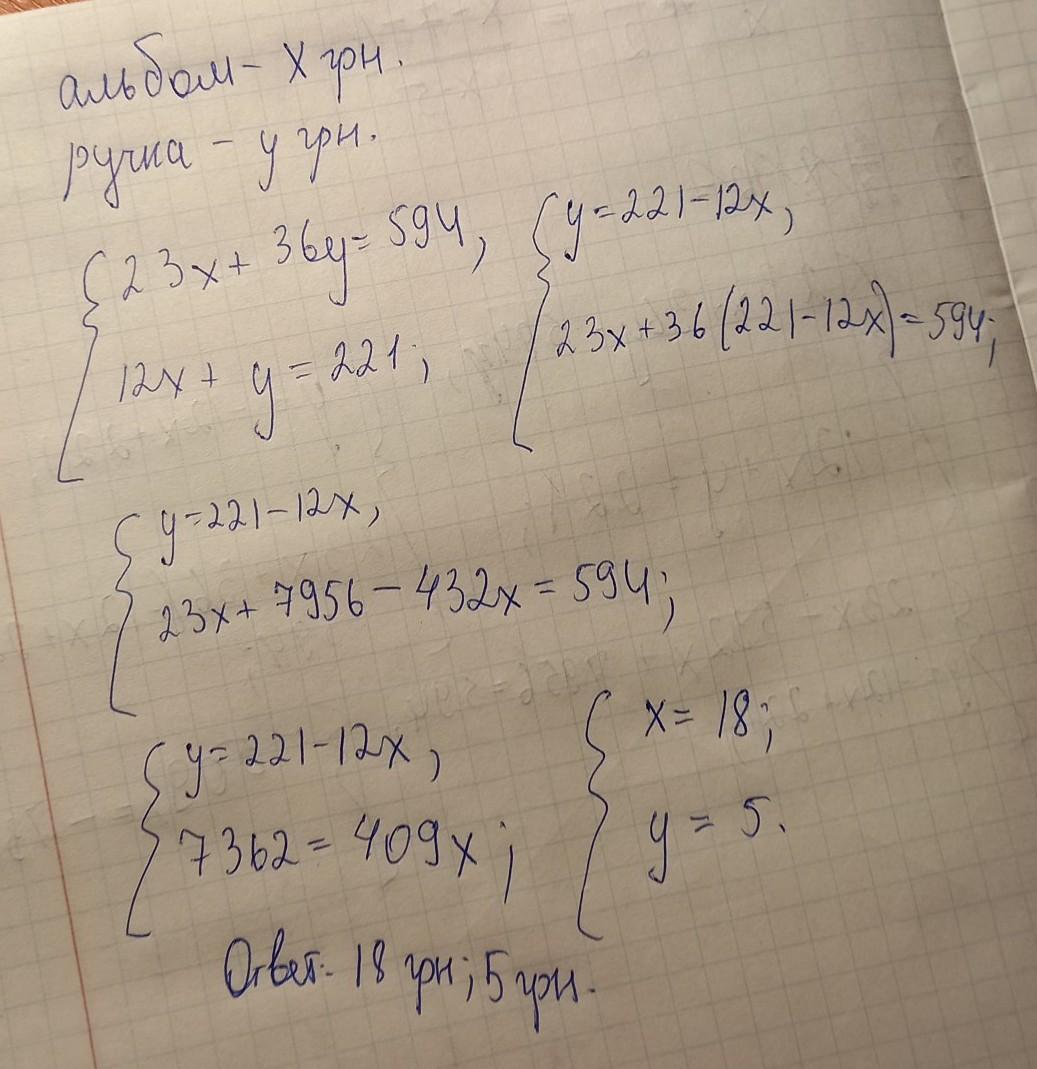 альбом - х грн.
ручка - у грн.
23х + 36у = 594,
12х + у = 221;
у = 221 - 12х,
23х + 36(221 - 12х) = 594;
у = 221 - 12х,
23х + 7956 - 432х = 594;
у = 221 - 12х,
7362 = 409х;
х = 18;
у = 5.
Ответ: 18 грн; 5 грн.